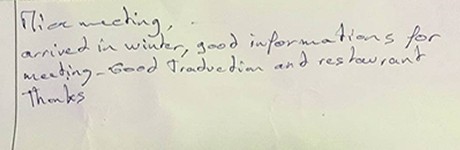 Nice meeting,
arrived in winter, good informations for
meeting - Good Traduction and restaurant
Thanks